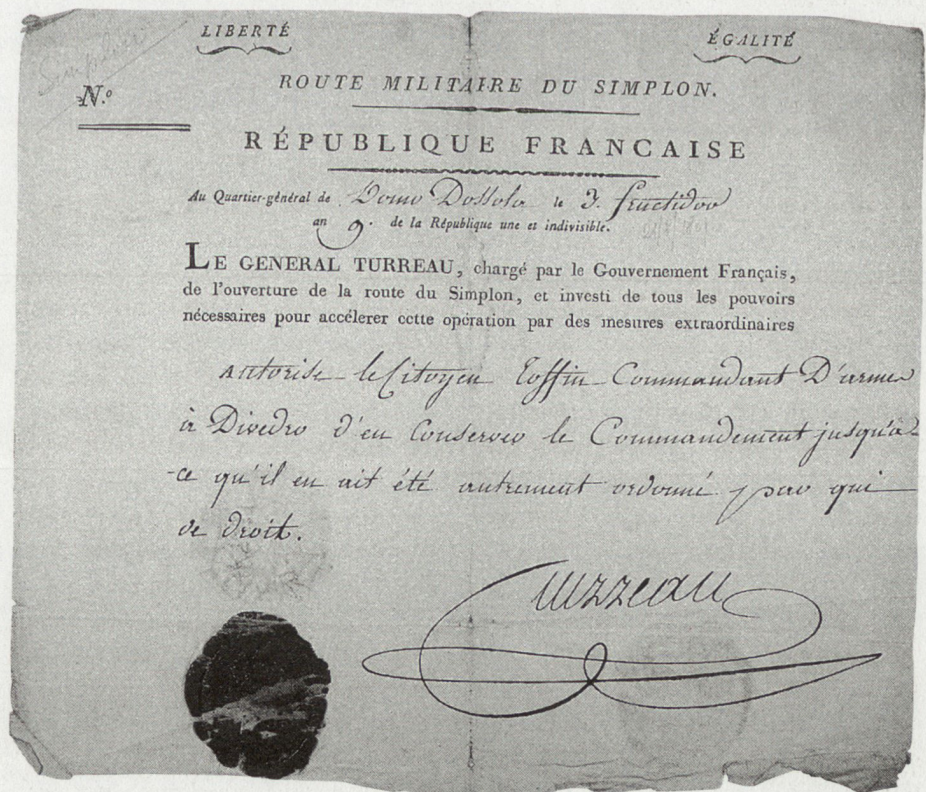 LIBERTÉ ÉGALITÉ
ROUTE MILITAIRE DU SIMPLON.
N.º
RÉPUBLIQUE FRANCAISE
Au Quartier-général de Domo Dossola le 3. fructidor
an 9. de la République une et indivisible.
LE GENERAL TURREAU, chargé par le Gouvernement Français,
de l'ouverture de la route du Simplon, et investi de tous les pouvoirs
nécessaires pour accélerer cette opération par des mesures extraordinaires
autorise le Citoyen Coffin Commandant D'armes
à Divedro d'en Conserver le Commandement jusqu'à
ce qu'il en ait été autrement ordonné par qui
de droit.
Turreau